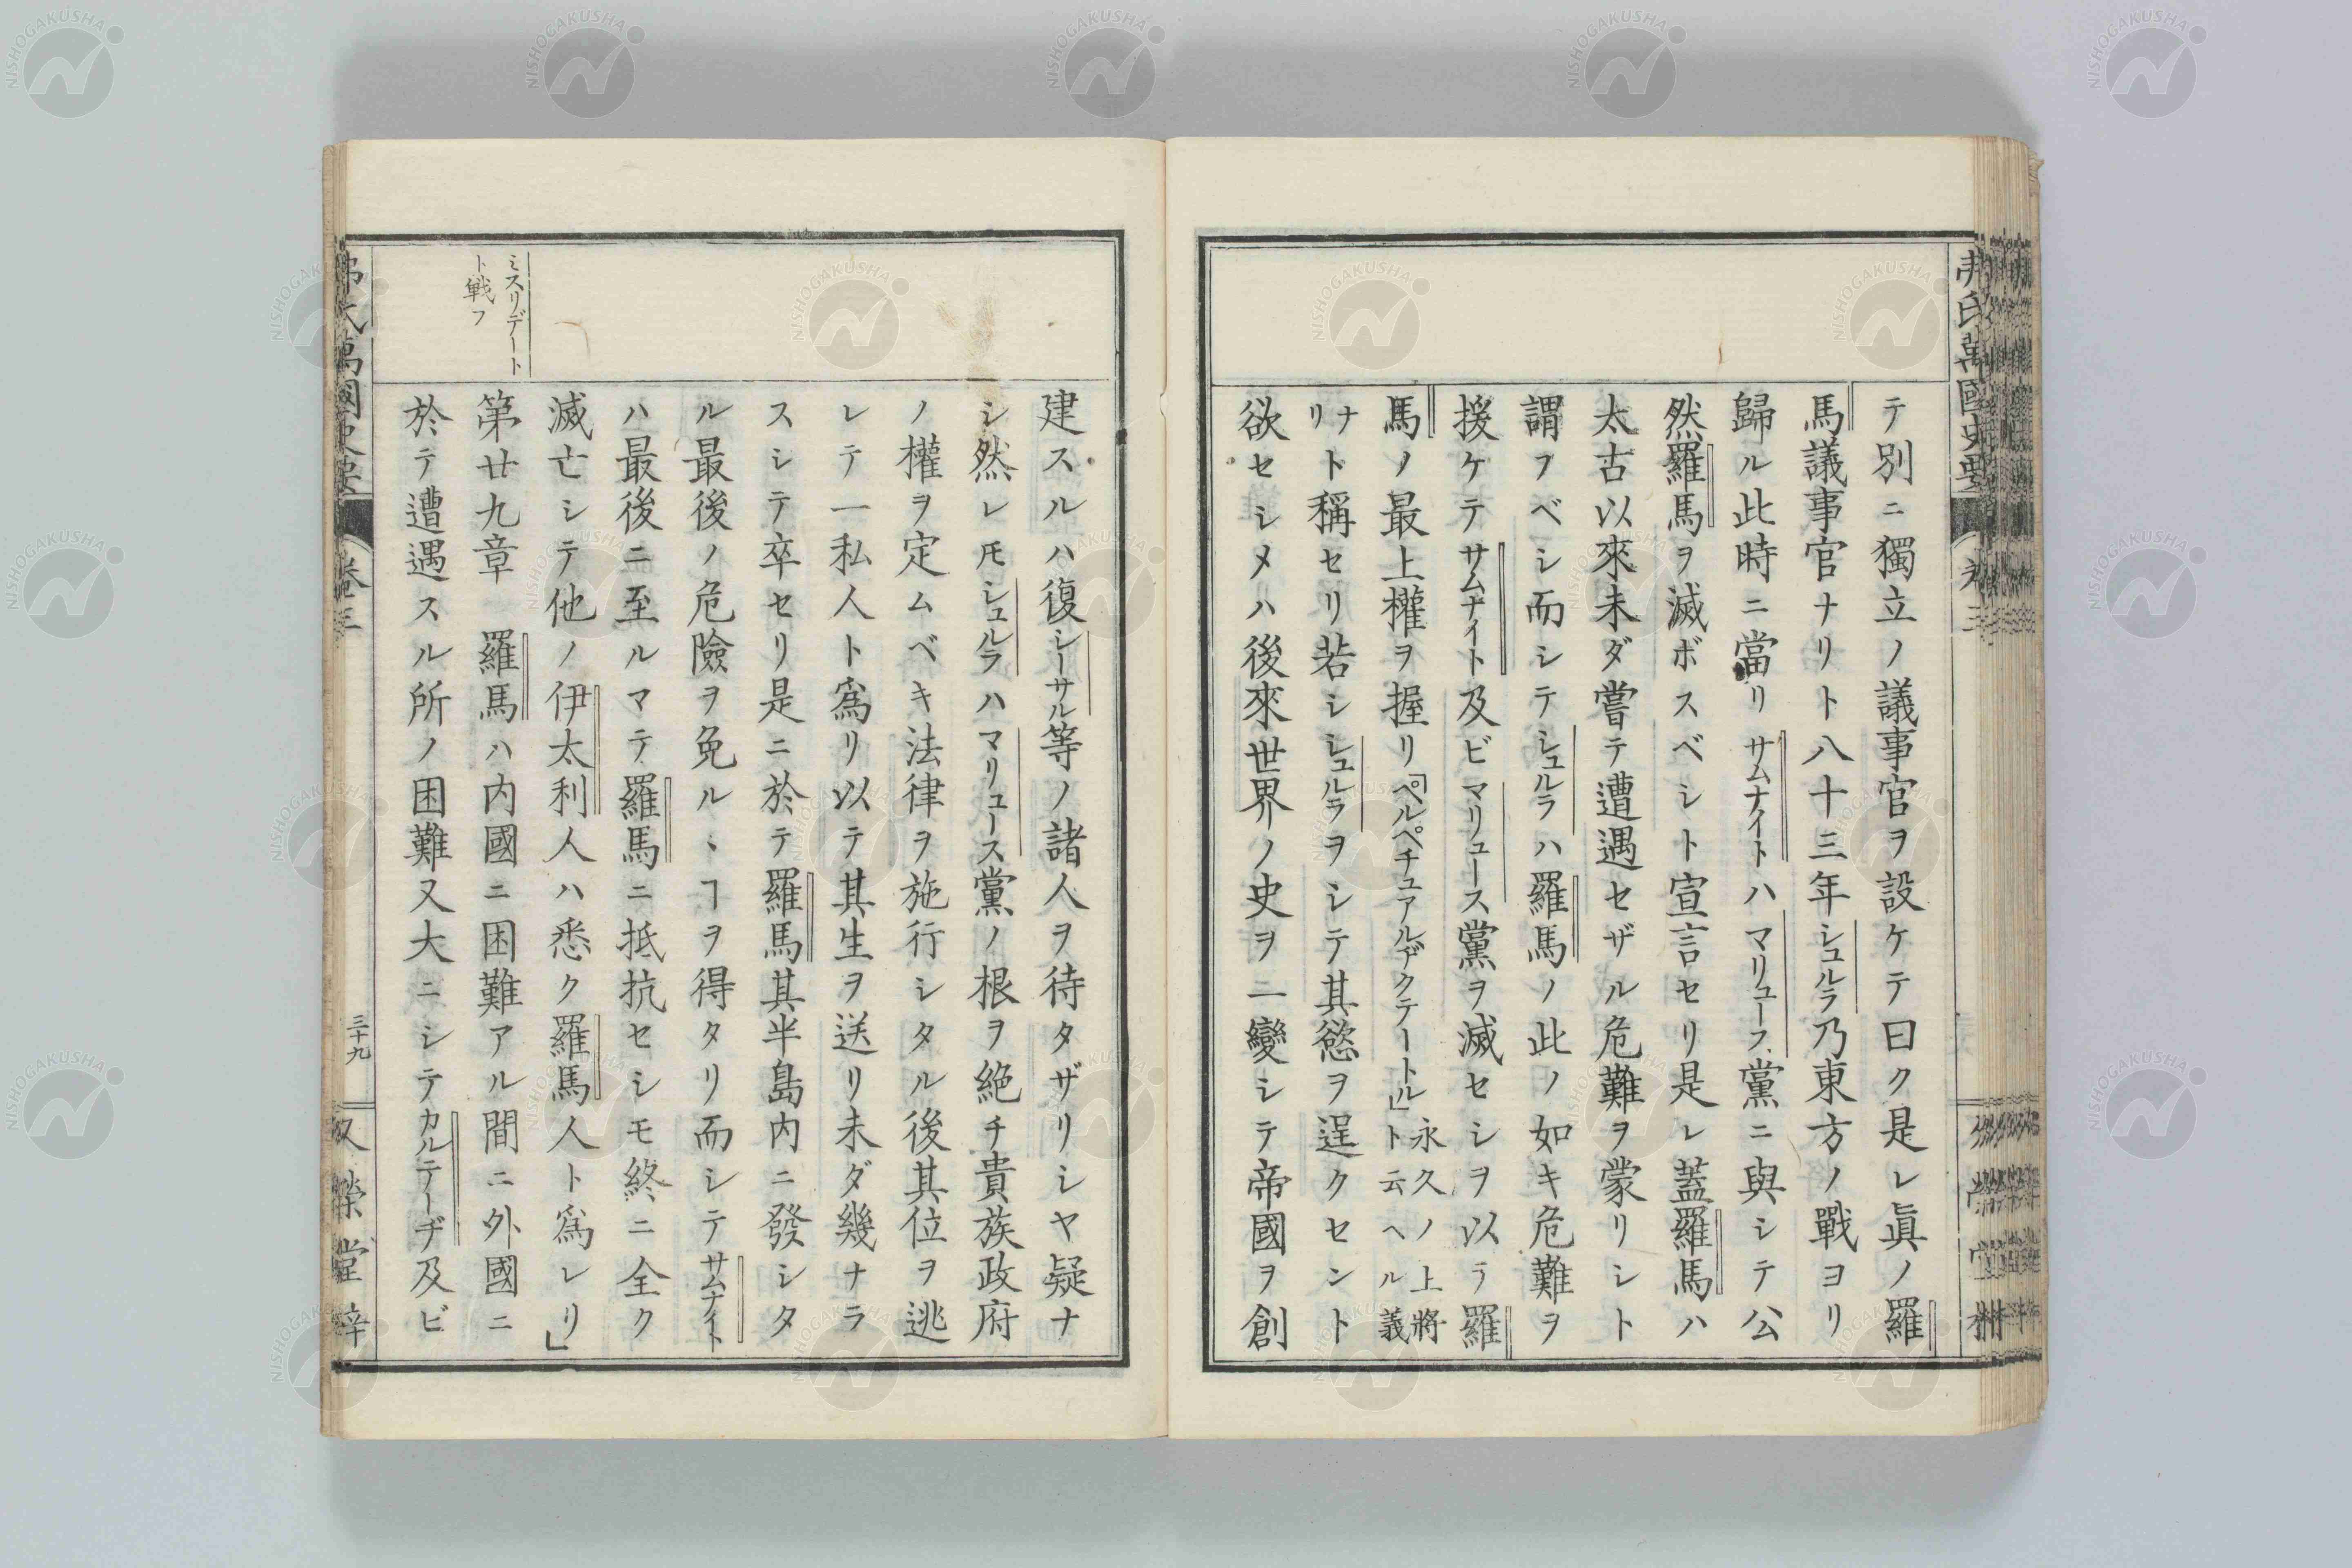 テ別ニ獨立ノ議事官ヲ設ケテ曰ク是レ眞ノ羅
馬議事官ナリト八十三年シュルラ乃東方ノ戰ヨリ
歸ル此時ニ當リサムナイトハマリュース黨ニ與シテ公
然羅馬ヲ滅ボスベシト宣言セリ是レ蓋羅馬ハ
太古以來未ダ嘗テ遭遇セザル危難ヲ蒙リシト
謂フベシ而シテシュルラハ羅馬ノ此ノ如キ危難ヲ
援ケテサムナイト及ビマリュース黨ヲ滅セシヲ以テ羅
馬ノ最上權ヲ握リ「ペルペチュアルヂクテートル」永久ノ上將ト云ヘル義
ナリト稱セリ若シシュルラヲシテ其慾ヲ逞クセント
欲セシメハ後來世界ノ史ヲ一變シテ帝國ヲ創
弗氏萬國史要
卷三
建スルハ復シーサル等ノ諸人ヲ待タザリシヤ疑ナ
シ然レ𪜈シュルラハマリュース黨ノ根ヲ絶チ貴族政府
ノ權ヲ定ムベキ法律ヲ施行シタル後其位ヲ逃
レテ一私人ト爲リ以テ其生ヲ送リ未ダ幾ナラ
スシテ卒セリ是ニ於テ羅馬其半島内ニ發シタ
ル最後ノ危險ヲ免ルヽヿヲ得タリ而シテサムナイト
ハ最後ニ至ルマテ羅馬ニ抵抗セシモ終ニ全ク
滅亡シテ他ノ伊太利人ハ悉ク羅馬人ト爲レリ」
第廿九章 羅馬ハ内國ニ困難アル間ニ外國ニ
於テ遭遇スル所ノ困難又大ニシテカルテーヂ及ビ
ミスリデート
ト戦フ
弗氏萬國史要
卷三
三十九
NISHOGAKUSHA